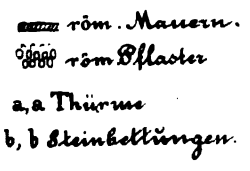 röm. Mauern.
röm Pflaster
a, a Thürme
b, b Steinbettungen.